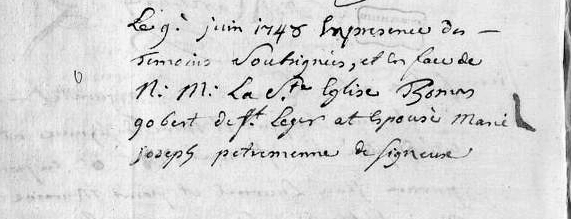 Le 9.e juin 1748 En presence des
temoins Soubsignés, et en face de
N: M: La S.te Eglise
gobert de St. Leger at Epousé Marie
joseph petremenne de signeux